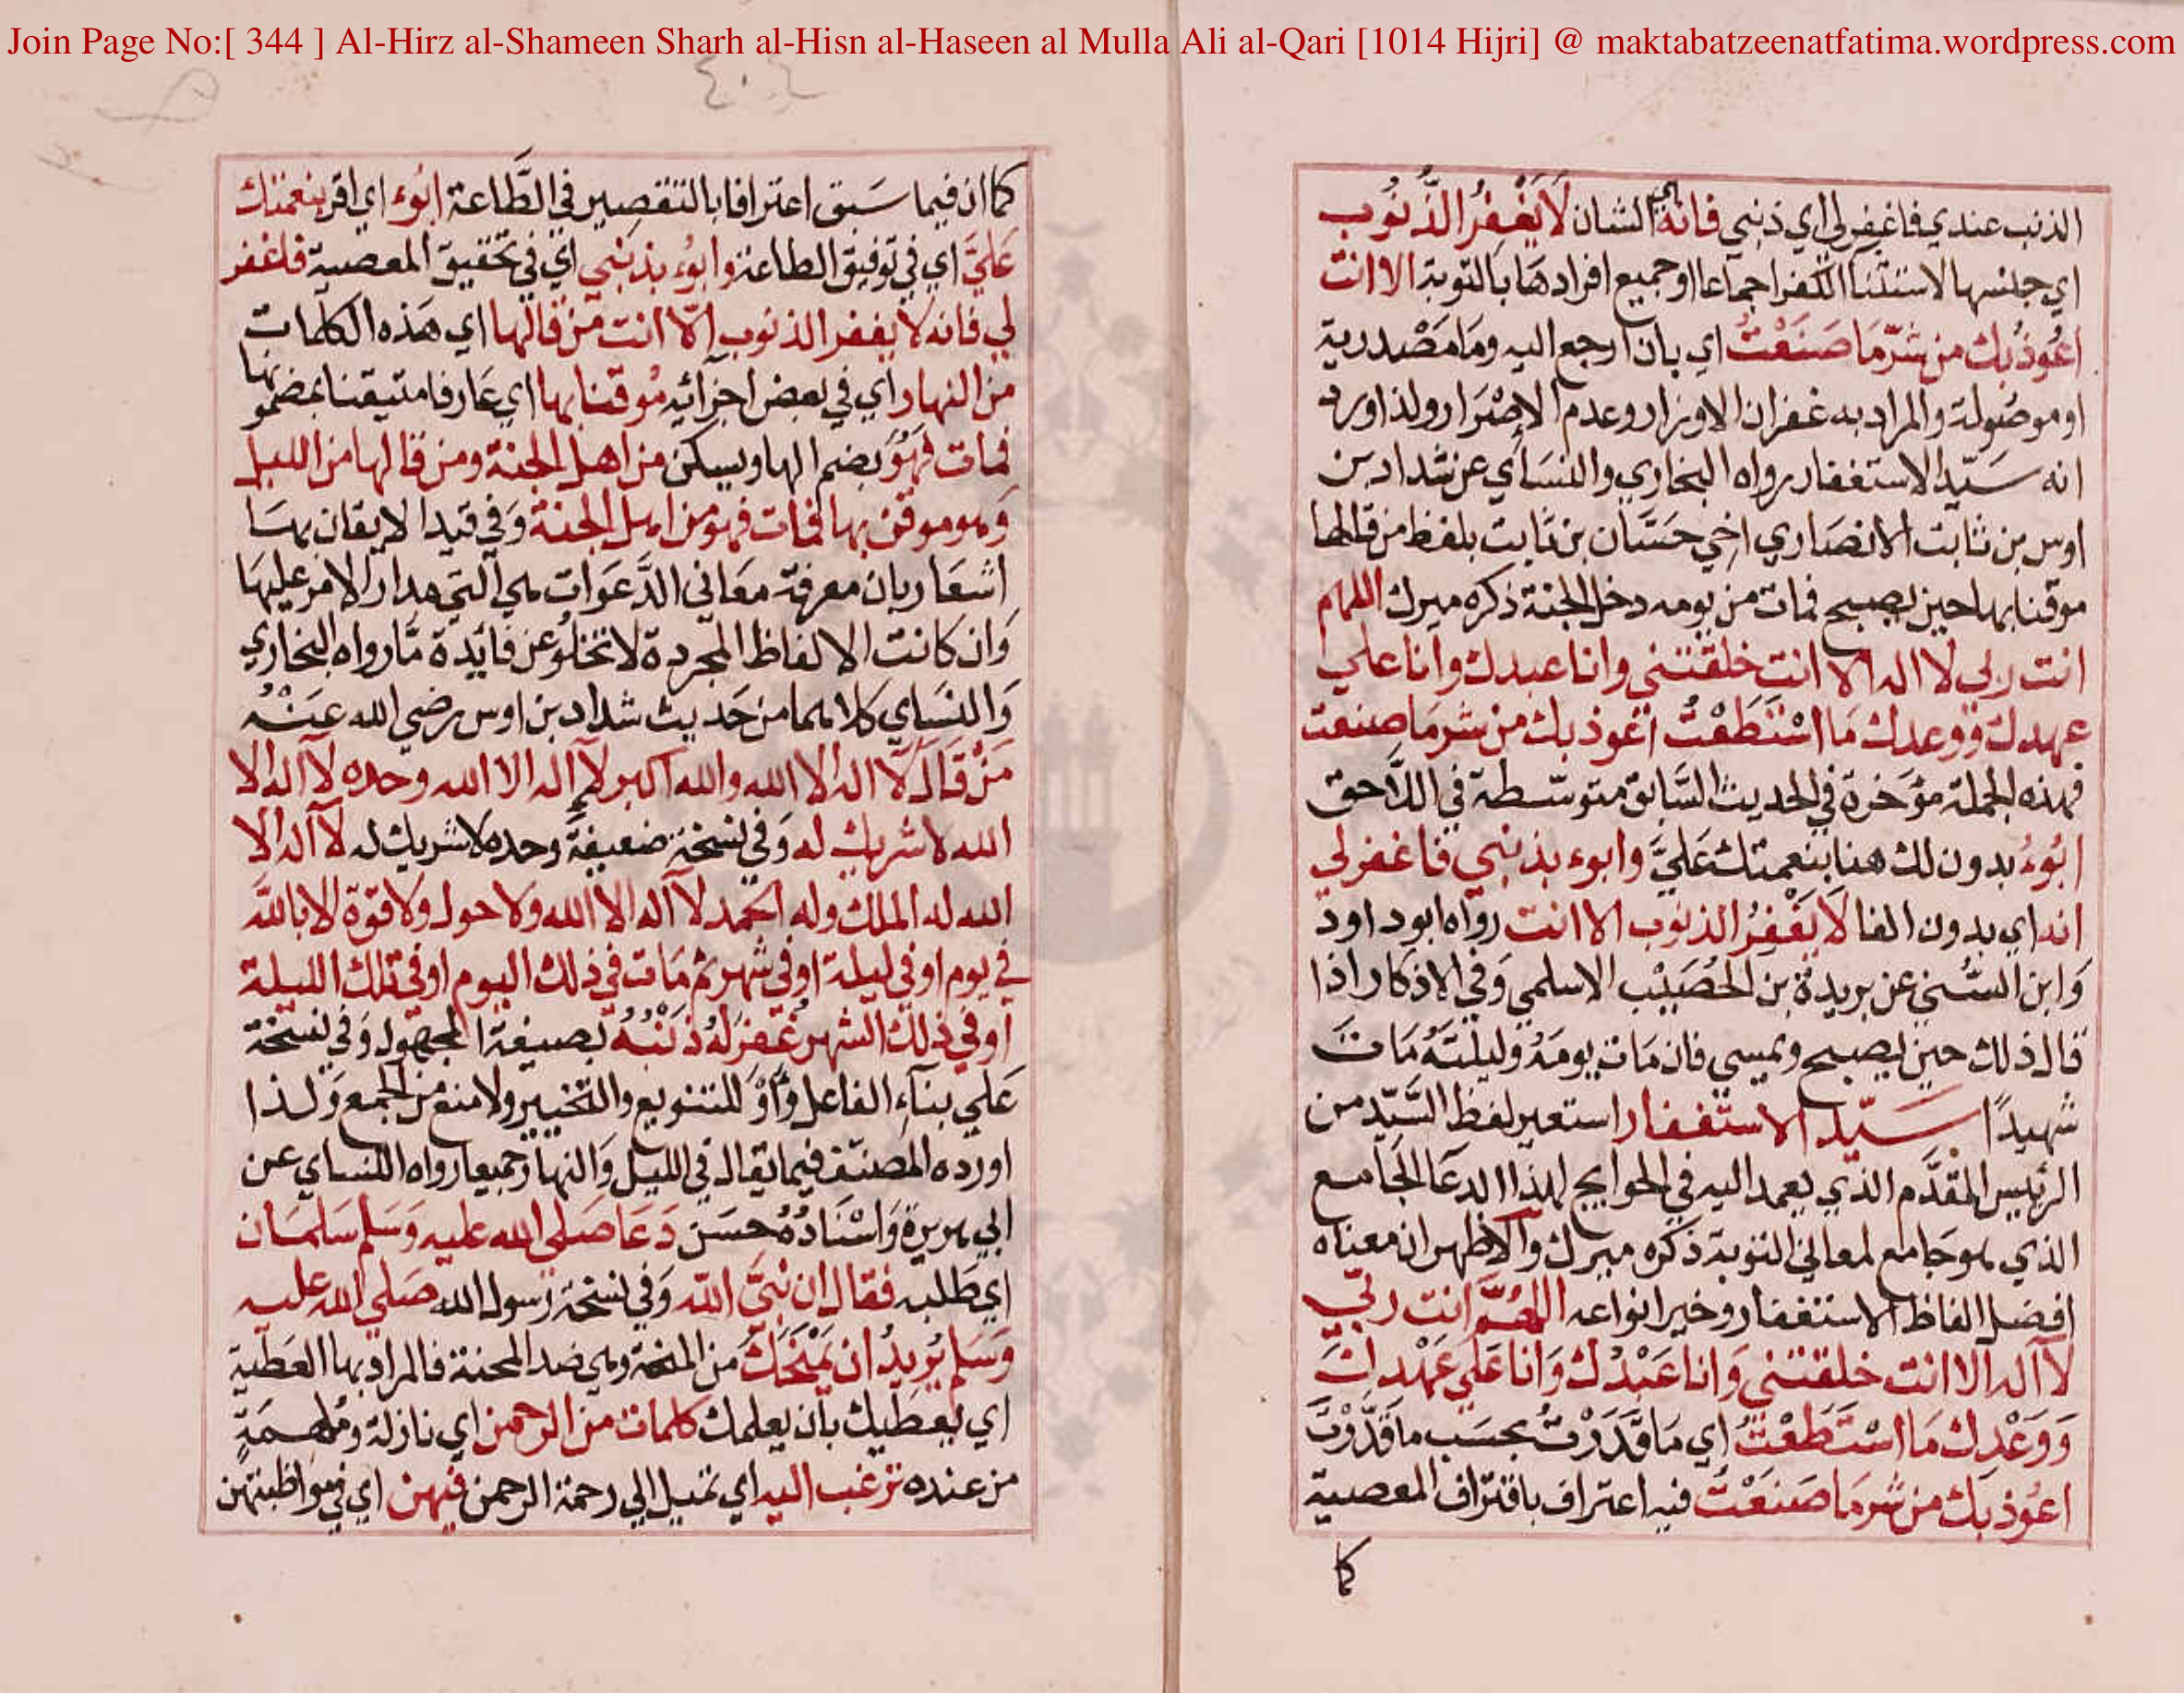 Join Page No:[ 344 ] Al-Hirz al-Shameen Sharh al-Hisn al-Haseen al Mulla Ali al-Qari [1014 Hijri] @ maktabatzeenatfatima.wordpress.com
الذنب عندي فاغفر لي اي ذنبي فانه اي الشان لَا يَغْفِرُ الذُّنُوب
اي جنسها لاستثناء الكفر اجماعا او جميع افرادها بالتوبة الا انت
اعُوذُ بك من شرّ مَا صَنَعْتُ اي بان ارجع اليه ومَا مَصْدرية
او موصُولة والمراد به غفران الاوزار وعدم الاصْرَار ولذا ورد
انه سَيّد الاستغفار رواه البخاري والنسَاي عن شداد بن
اوس بن ثابت الانصَاري اخي حَسَّان بن ثابت بلفظ من قالها
موقنا بها حين يصبح فمات من يومه دخل الجنة ذكره ميرك اللهم
انت ربي لا اله الا انت خلقتني وانا عبدك وانا علي
عهدك ووعدك مَا اسْتَطَعْتُ اعوذ بك من شر مَا صنعت
فهذه الجملة مؤخرة في الحديث السَّابق متوسّطة في اللاحق
ابُوءُ بدون لك هنا بنعمتك عَليَّ وابوء بذنبي فاغفر لي
انه اي بدون الفا لَا يَغْفِرُ الذنوب الا انت رواه ابو داود
وَابن السُّني عن بريدة بن الحُصَيْب الاسلمي وَفي الاذكار اذا
قال ذلك حين يصبح ويمسي فان مَات يومَهُ وليلتَهُ مَاتَ
شهيدًا سَيّد الاستغفار استعير لفظ السَّيّد من
الرئيس المقدَّم الذي يعمد اليه في الحوايج لهذا الدعَا الجَامع
الذي هو جَامع لمعاني التوبة ذكره ميرك والاظهر ان معناه
افضل الفاظ الاستغفار وخير انواعه اللهُمَّ انت ربّي
لا اله الا انت خلقتني وَانا عَبْدُك وَانا عَلي عَهْدك
وَوَعْدك مَا اسْتَطَعْتُ اي مَا قَدَرْتُ بحسَب ما قَدَّرْتَ
اعُوذ بَك من شر مَا صَنَعْتُ فيه اعتراف باقتراف المعصية
كما
٤٠٤
كما ان فيما سَبق اعترافا بالتقصير في الطَّاعة ابُوء اي اقر بنعمتك
عَليَّ اي في توفيق الطاعة وابوُء بذنبي اي في تحقيق المعصية فاغفر
لي فانه لا يغفر الذنوب الّا انت من قالها اي هَذه الكلمات
من النهار اي في بعض اجزائه مُوقنا بها اي عَارفا متيقنا بمضمونها
فمات فهُوَ بضم الها ويسكن من اهل الجنة ومن قالها من الليل
وَهو موقن بها فمات فهو من اهل الجنة وَفي قيد الايقان بهَا
اشعَار بان معرفة معَاني الدَّعَوات هي التي مدار الامر عليهَا
وَان كانت الالفاظ المجردة لا تخلُو عن فائِدة مَّا رواه البخاري
وَالنسَاي كلاهما من حَديث شداد بن اوس رضي الله عَنْهُ
مَنْ قَال لا اله الا الله والله اكبر لا اله الا الله وحده لا اله الا
الله لا شريك له وَفي نسخة ضعيفة وحده لا شريك له لا اله الا
الله له الملك وله الحَمد لا اله الا الله ولا حول ولا قوة الا باللّه
في يوم او في ليلة او في شهر ثم مَات في ذلك اليوم او في تلك الليلة
او في ذلك الشهر غُفِرَ لهُ ذَنْبُهُ بصيغة المجهول وَفي نسخة
عَلي بناءِ الفاعل وَاَوْ للتنويع والتخيير ولا منع من الجمع وَلذا
اورده المصنّف فيما يقال في الليل وَالنهار جميعا رواه النسَاي عن
ابي هريرة وَاسْنَادُهُ حسَن دَعَا صَلي الله عليه وَسَلم سَلمَان
اي طَلبه فقال ان نبَيَّ اللّه وَفي نسخة رسول الله صَلي الله عليه
وَسَلم يُرِيدُ ان يَمْنَحَكَ من المنحة وهي ضد المحنة فالمراد بها العَطية
اي يعطيك بان يعلمك كلمات من الرحمن اي نازلة ومُلهمَةٍ
من عنده ترغب اليه اي تميل الي رحمة الرحمن فيهن اي في مواظبتهن